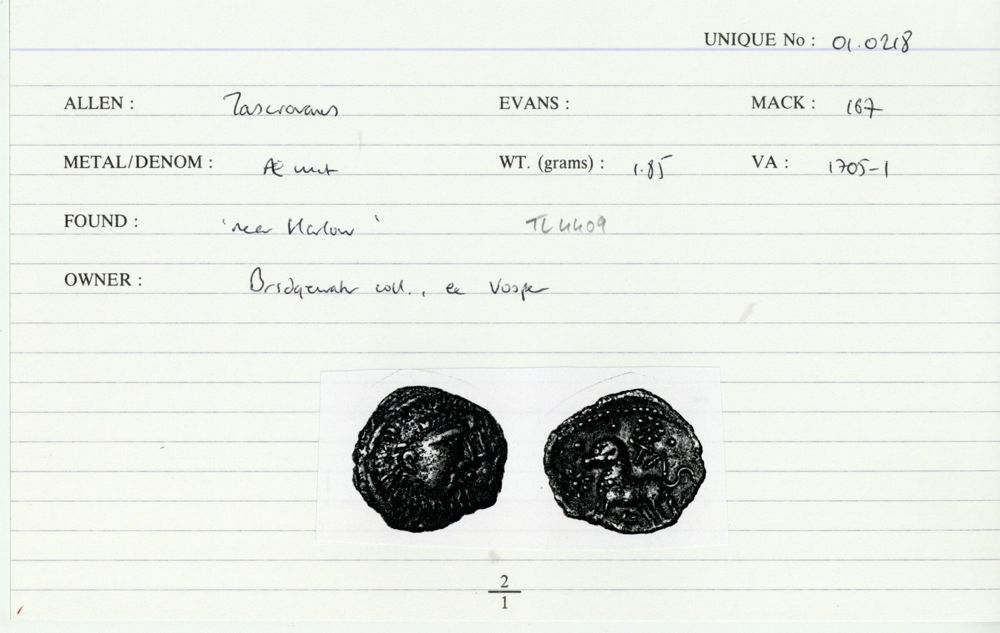 UNIQUE No : 01.0218
ALLEN : Tasciovanus EVANS : MACK : 167
METAL/DENOM : Æ unit WT. (grams) : 1.85 VA : 1705-1
FOUND : 'near Harlow' TL 4409
OWNER : Bridgewater coll., ex Vosper
2
1